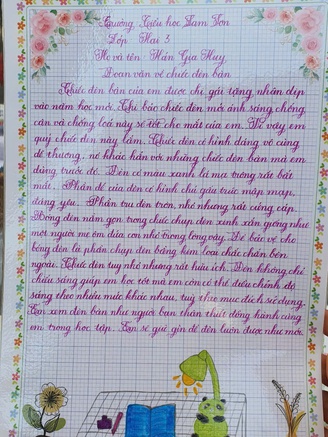 Trường Tiểu học Lam Sơn
Lớp Hai 3
Họ và tên Trần Gia Huy
Đoạn văn về chiếc đèn bàn
Chiếc đèn bàn của em được chị gái tặng nhân dịp
vào năm học mới. Chị bảo chiếc đèn mới ánh sáng chống
cận và chống loá này sẽ tốt cho mắt của em. Vì vậy em
quý chiếc đèn này lắm. Chiếc đèn có hình dáng vô cùng
dễ thương, nó khác hẳn với những chiếc đèn bàn mà em
dùng trước đó. Đèn có màu xanh lá mạ trông rất bắt
mắt. Phần đế của đèn có hình chú gấu trúc mập mạp,
đáng yêu. Phần trụ đèn tròn, nhỏ nhưng rất cứng cáp.
Bóng đèn nằm gọn trong chiếc chụp đèn xinh xắn giống như
một người mẹ ôm đứa con nhỏ trong lòng vậy. Để bảo vệ cho
bóng đèn là phần chụp đèn bằng kim loại chắc chắn bên
ngoài. Chiếc đèn tuy nhỏ nhưng rất hữu ích. Đèn không chỉ
chiếu sáng giúp em học tốt mà em còn có thể điều chỉnh độ
sáng theo nhiều mức khác nhau, tuỳ theo mục đích sử dụng.
Em xem đèn bàn như người bạn thân thiết đồng hành cùng
em trong học tập. Em sẽ giữ gìn để đèn luôn được như mới.